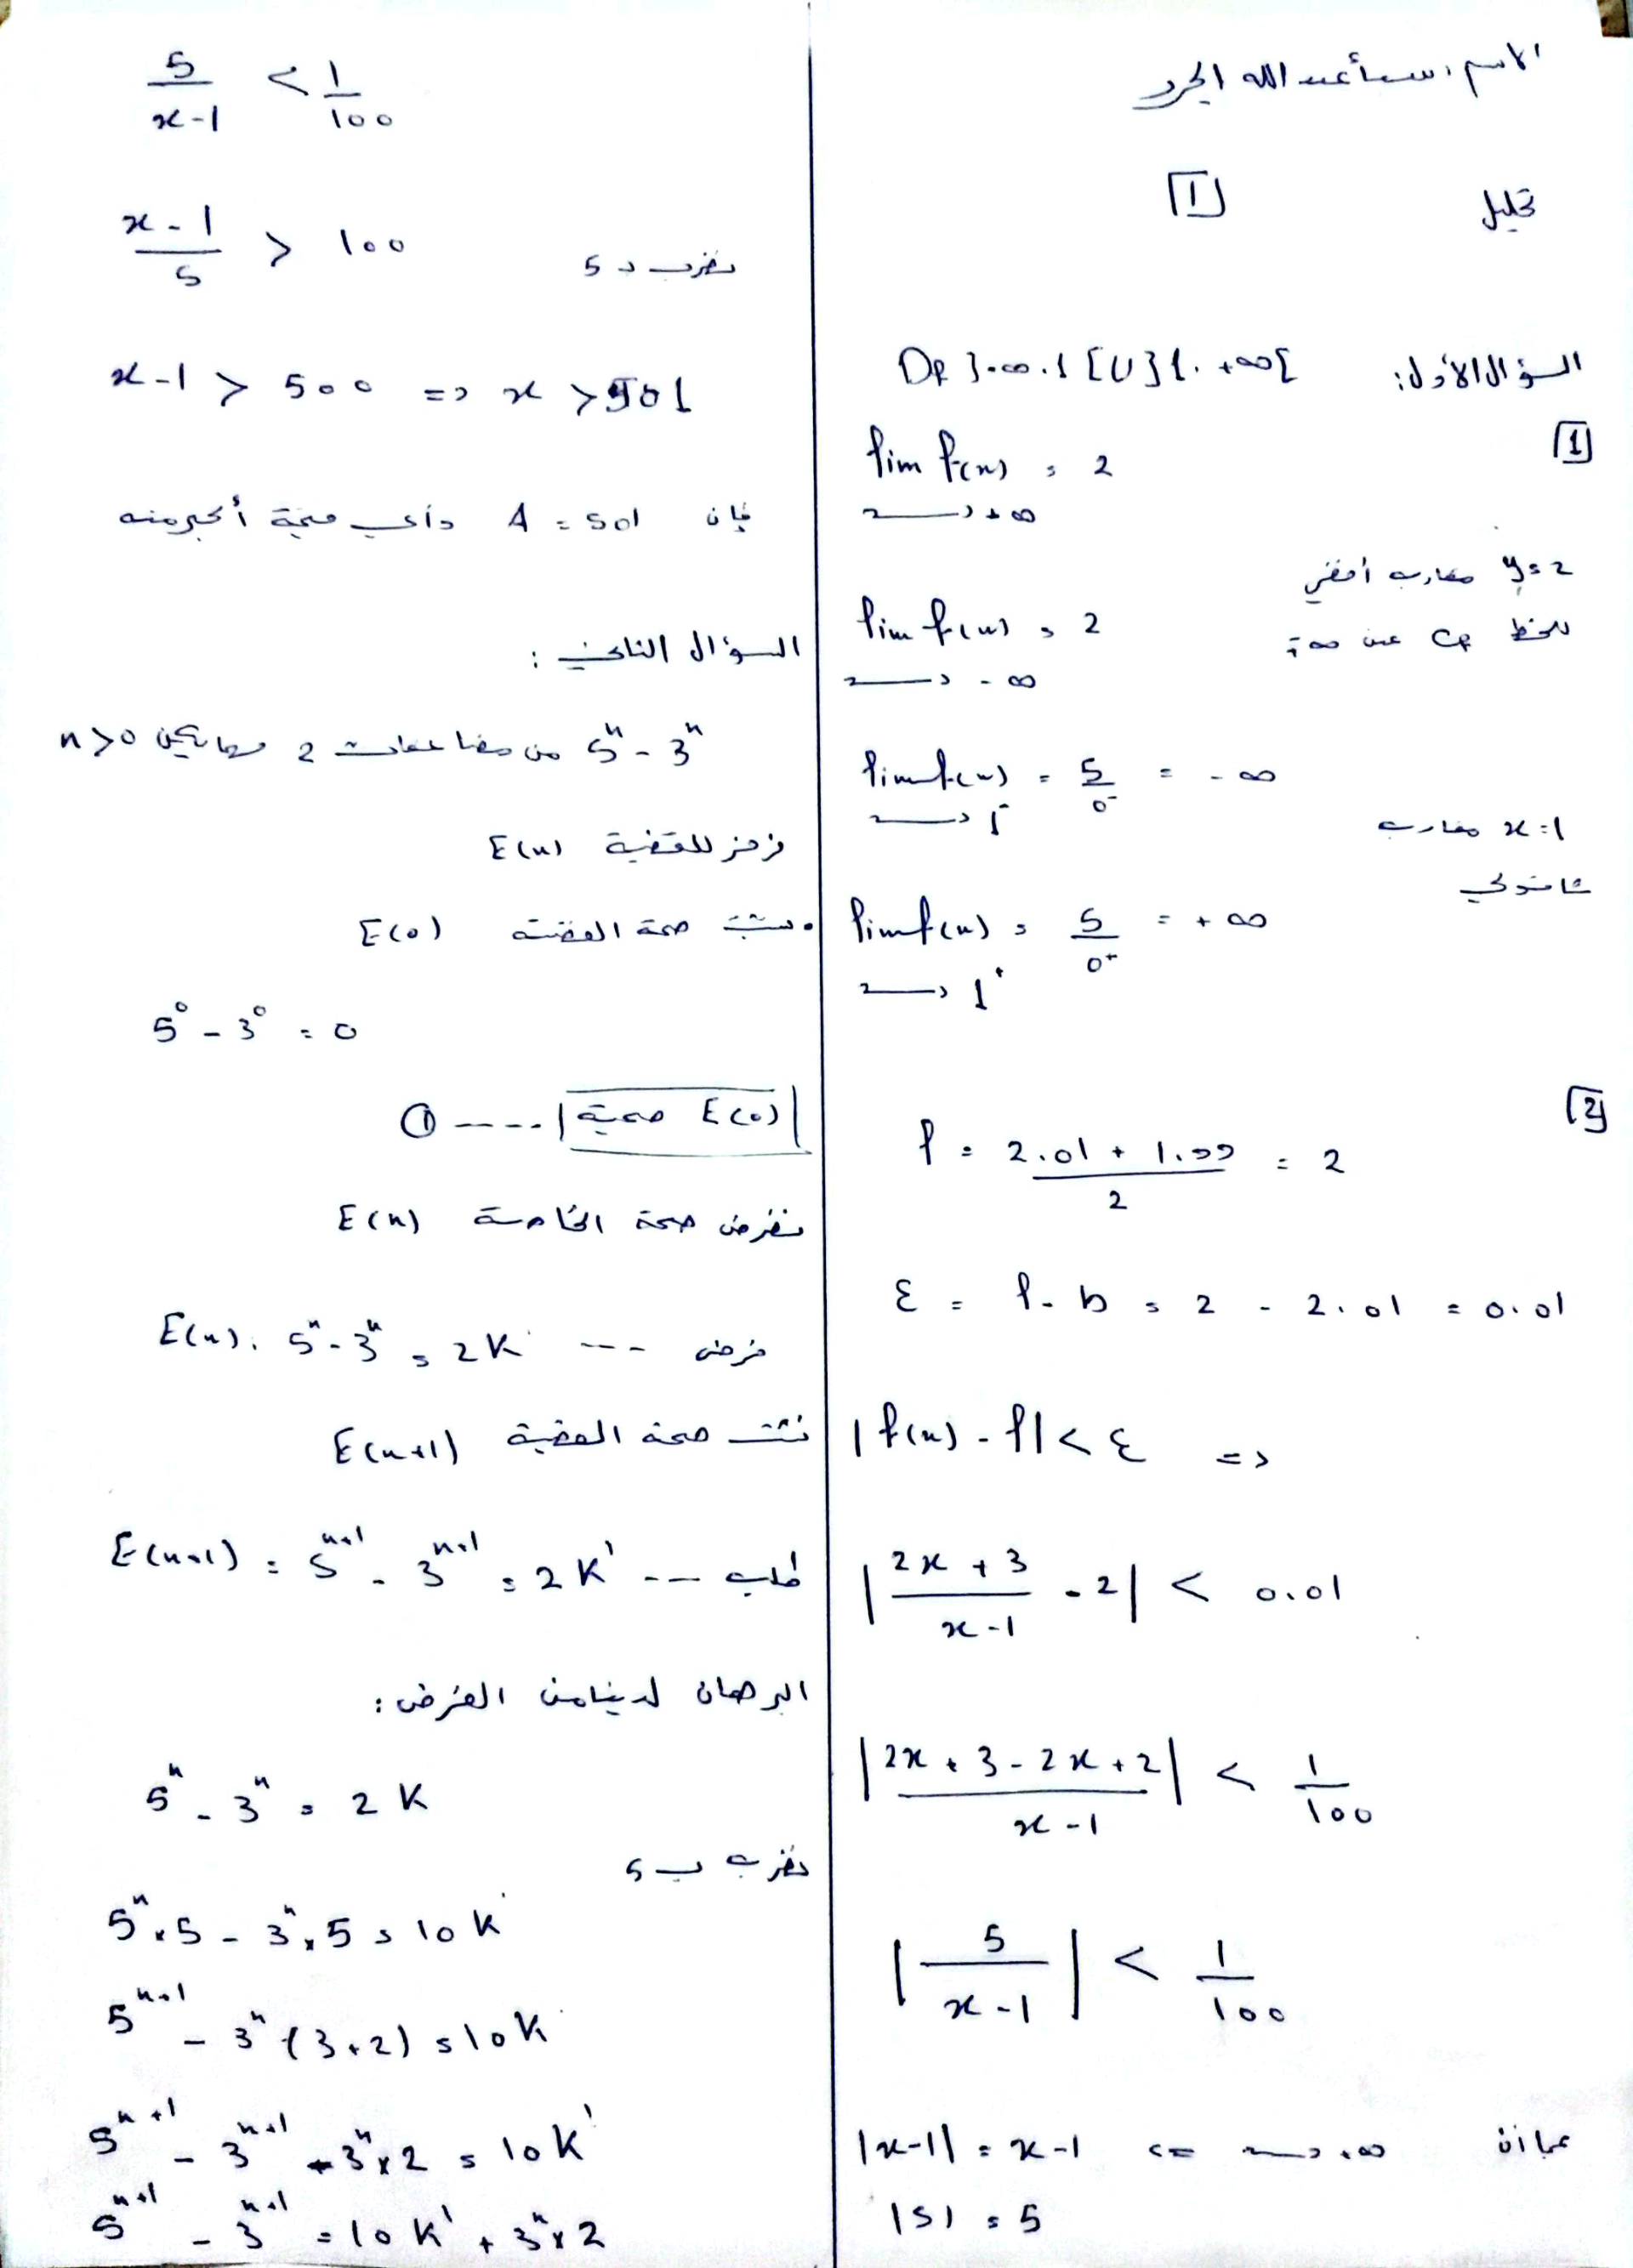 الاسم : سبأ عبد الله الجرد
تحليل [1]
السؤال الأول: Df ]-∞.1[U]1.+∞[
[1]
lim f(x) = 2
x → +∞
y=2 مقارب أفقي
للخط Cf عند +∞
lim f(x) = 2
x → -∞
lim f(x) = 5/0⁻ = -∞
x → 1⁻
x=1 مقارب
شاقولي
lim f(x) = 5/0⁺ = +∞
x → 1⁺
[2]
l = (2.01 + 1.99)/2 = 2
ε = l - b = 2 - 2.01 = 0.01
|f(x) - l| < ε =>
|(2x + 3)/(x-1) - 2| < 0.01
|(2x + 3 - 2x + 2)/(x-1)| < 1/100
|5/(x-1)| < 1/100
بما أن x → +∞ <= |x-1| = x-1
|5| = 5
5/(x-1) < 1/100
(x-1)/5 > 100
نضرب د 5
x-1 > 500 => x > 501
فإن A = 501 وأي قيمة أكبر منه
السؤال الثاني :
5ⁿ - 3ⁿ من مضاعفات 2 مهما يكن n>0
نرمز للقضية E(n)
• نثبت صحة القضية E(0)
5⁰ - 3⁰ = 0
E(0) صحيحة ---- ①
نفرض صحة الخاصة E(n)
E(n): 5ⁿ - 3ⁿ = 2K --- فرض
نثبت صحة القضية E(n+1)
E(n+1) = 5ⁿ⁺¹ - 3ⁿ⁺¹ = 2K' --- طلب
البرهان لدينا من الفرض :
5ⁿ - 3ⁿ = 2K
نضرب ب 5
5ⁿ×5 - 3ⁿ×5 = 10K
5ⁿ⁺¹ - 3ⁿ(3+2) = 10K
5ⁿ⁺¹ - 3ⁿ⁺¹ - 3ⁿ×2 = 10K'
5ⁿ⁺¹ - 3ⁿ⁺¹ = 10K' + 3ⁿ×2